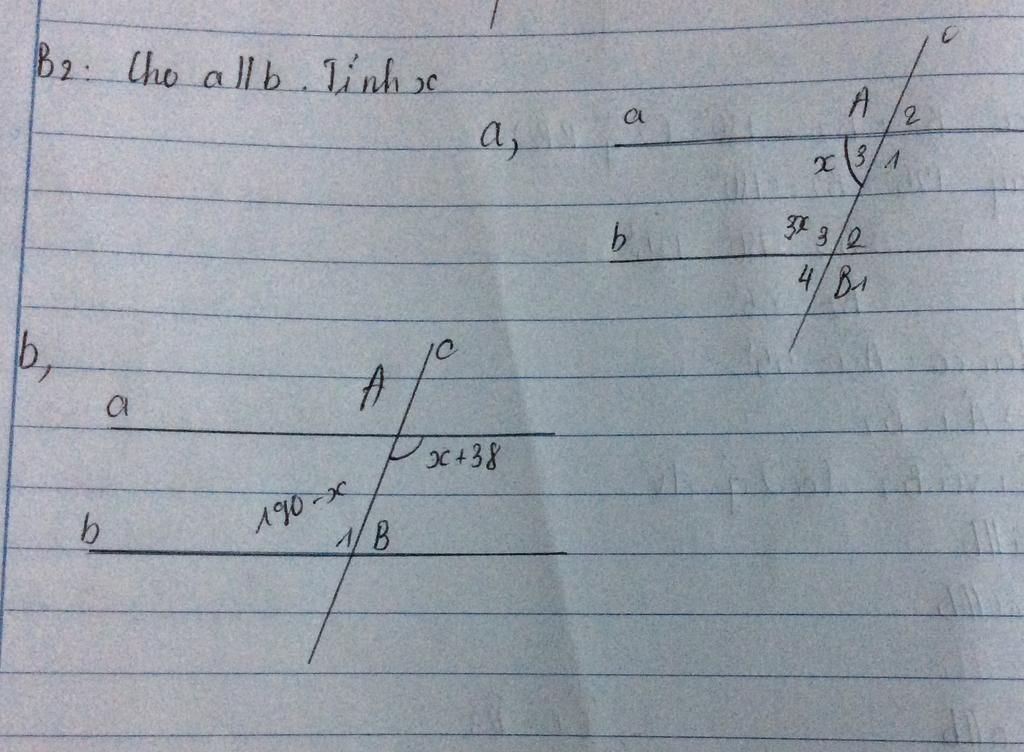 B2: Cho a // b. Tính x
a,
a
A
2
c
x
3
1
b
3x
3
2
4
B1
b,
a
A
c
x+38
190-x
b
1
B